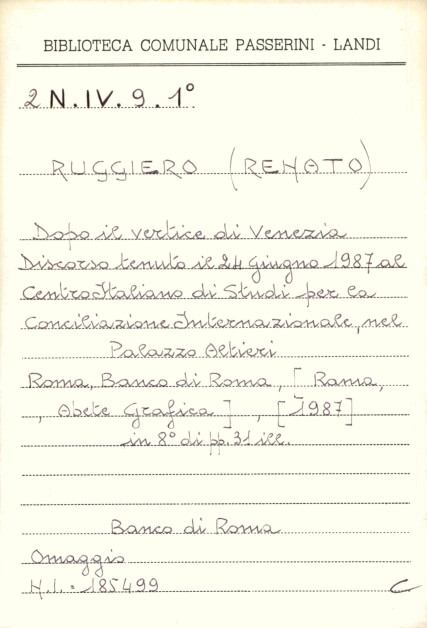 BIBLIOTECA COMUNALE PASSERINI - LANDI
2 N.IV. 9. 1°
RUGGIERO (RENATO)
Dopo il vertice di Venezia
Discorso tenuto il 24 Giugno 1987 al
Centro Italiano di Studi per la
Conciliazione Internazionale, nel
Palazzo Altieri
Roma, Banco di Roma, [Roma,
, Abete Grafica] , [1987]
in 8° di pp. 31 ill.
Banco di Roma
Omaggio
N.I. = 185499
C